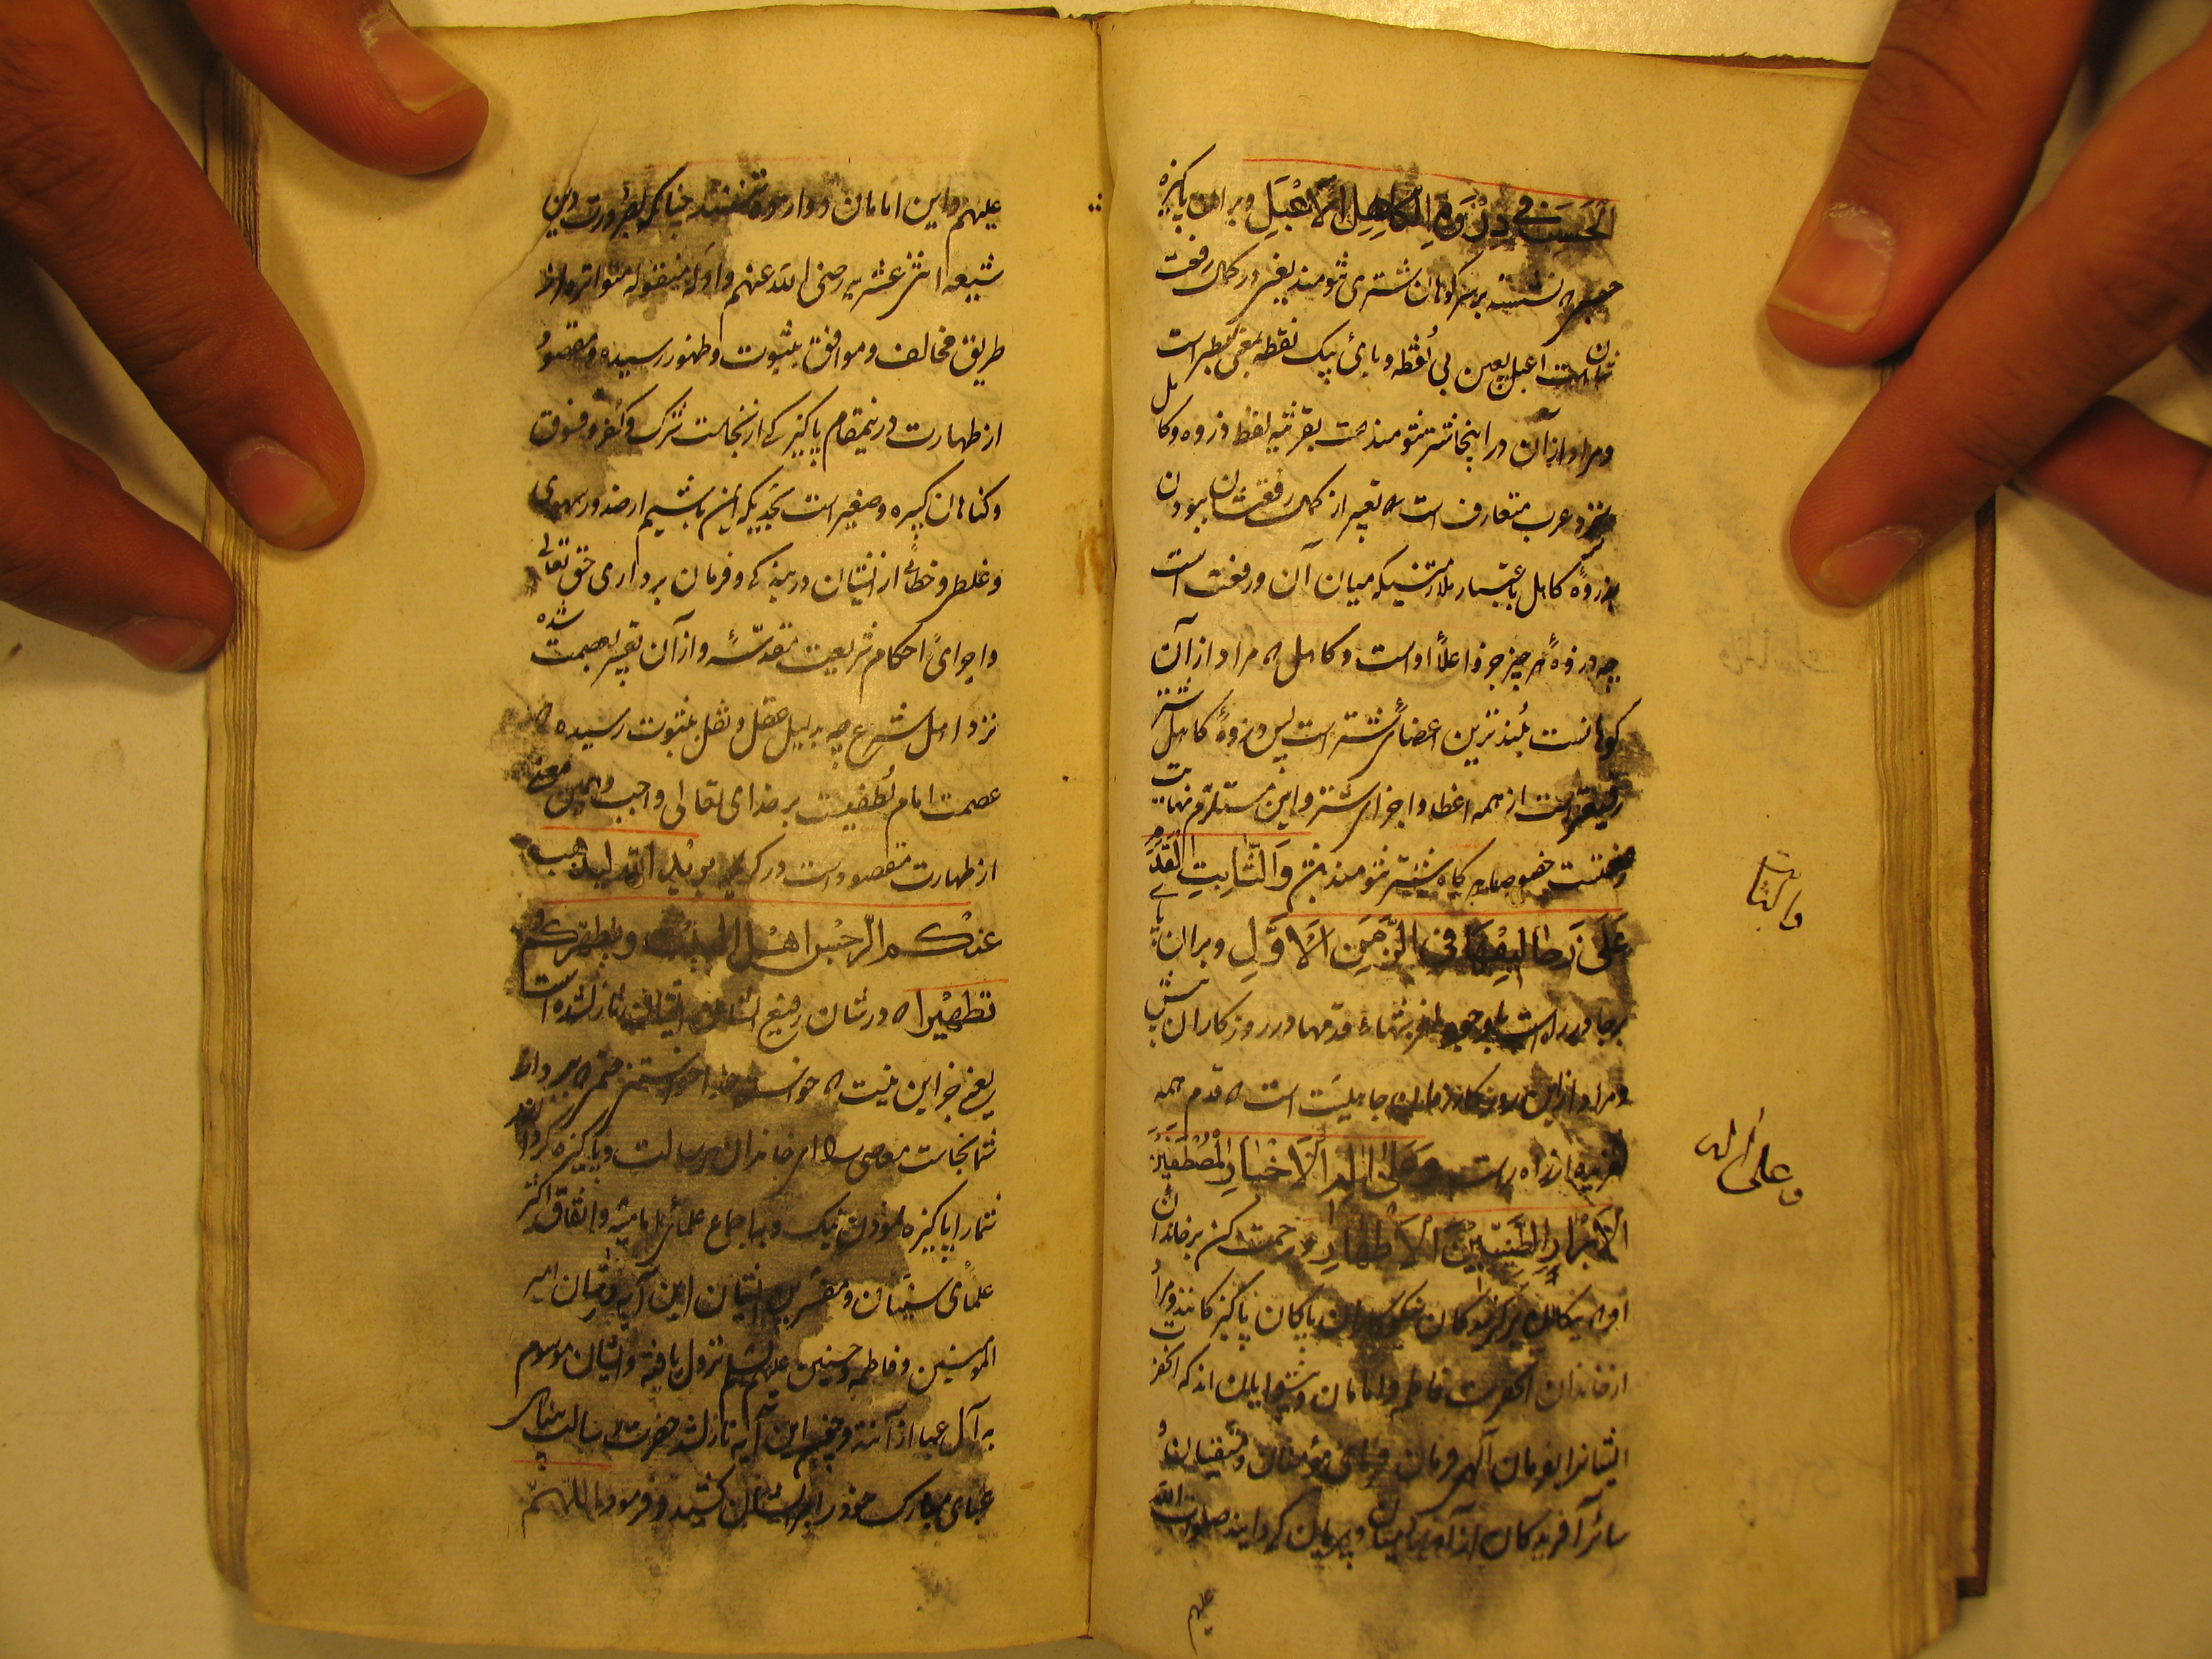 الحسب في ذروة الكاهل الاعبل وبران پاکیزه
نشسته بر سر کوهان شتری تنومند یعنی در کمال رفعت
شان است اعبل بعین بی نقطه وبای یک نقطه بمعنی سطبر است
ومراد ازآن در اینجا شتر تنومند است بقرینه لفظ ذروه وکاهل
ونزد عرب متعارف است که تعبیر از کمال رفعت شان ببودن
بر ذروهٔ کاهل باعتبار ملازمتیکه میان آن ورفعت است
چه ذروهٔ هر چیز جزو اعلأ او است وکاهل که مراد ازآن
کوهانست بلندترین اعضای شتر است پس ذروهٔ کاهل شتر
رفیعتر است از همه اعضا واجزای شتر واین مستلزم نهایت
رفعتست خصوصا هر کاه شتر تنومند بین والثابت القدم
علی زحالیفها فی الزمن الاول وبران ثابت
برجا در راه راست باوجود لغزشهای قدمها در روزکاران پیش
ومراد ازین روزکار زمان جاهلیت است که قدم همه
لغزیده از راه راست وعلی اله الاخیار المصطفین
الابرار الطیبین الاطهار ورحمت کن بر خاندان
او که نیکان برکزیدکان نیکوکاران پاکان پاکیزکانند ومراد
از خاندان آنحضرت فاطمه وامامان وپیشوایان اند که آنحضرت
ایشانرا بفرمان آلهی فرمان فرمای مؤمنان ومتقیان و
سائر آفریدکان از آدمیان وپریان کردانید صلوات الله
علیهم
والثابت
وعلی اله
علیهم واین امامان دوازده تنند چنانکه بضرورت دین
شیعه اثنی عشریه رضی الله عنهم وادله منقوله متواتره از
طریق مخالف وموافق بثبوت وظهور رسیده ومقصود
از طهارت در ینمقام پاکیزکی از نجاست شرک وکفر وفسوق
وکناهان کبیره وصغیره است بحدیکه ایمن باشیم از صدور سهوی
وغلط وخطائی از ایشان در بندکی وفرمان برداری حق تعالی
واجرای احکام شریعت مقدسه وازآن تعبیر بعصمت شده
نزد اهل شرع چه بدلیل عقل ونقل بثبوت رسیده که
عصمت امام لطفیست بر خدای تعالی واجب وهمین معنی
از طهارت مقصود است در کریمه یرید الله لیذهب
عنکم الرجس اهل البیت ویطهرکم
تطهیرا که در شان رفیع الشان ایشان نازلشده است
یعنی جز این نیست که خواسته خدا خواستنی حتم که بردارد از
شما نجاست معاصی را ای خاندان رسالت وپاکیزه کرداند
شما را پاکیزه نمودن نیک وباجماع علمای امامیه واتفاق اکثر
علمای سنیان ومفسرین ایشان این آیه در شان امیر
المؤمنین وفاطمه وحسنین علیهم السلام نزول یافته وایشان موسوم
به آل عبا ازآنند وچون این آیه نازلشد حضرت رسالت پناهی
عبای مبارک خود را بر ایشان کشید وفرمود اللهم